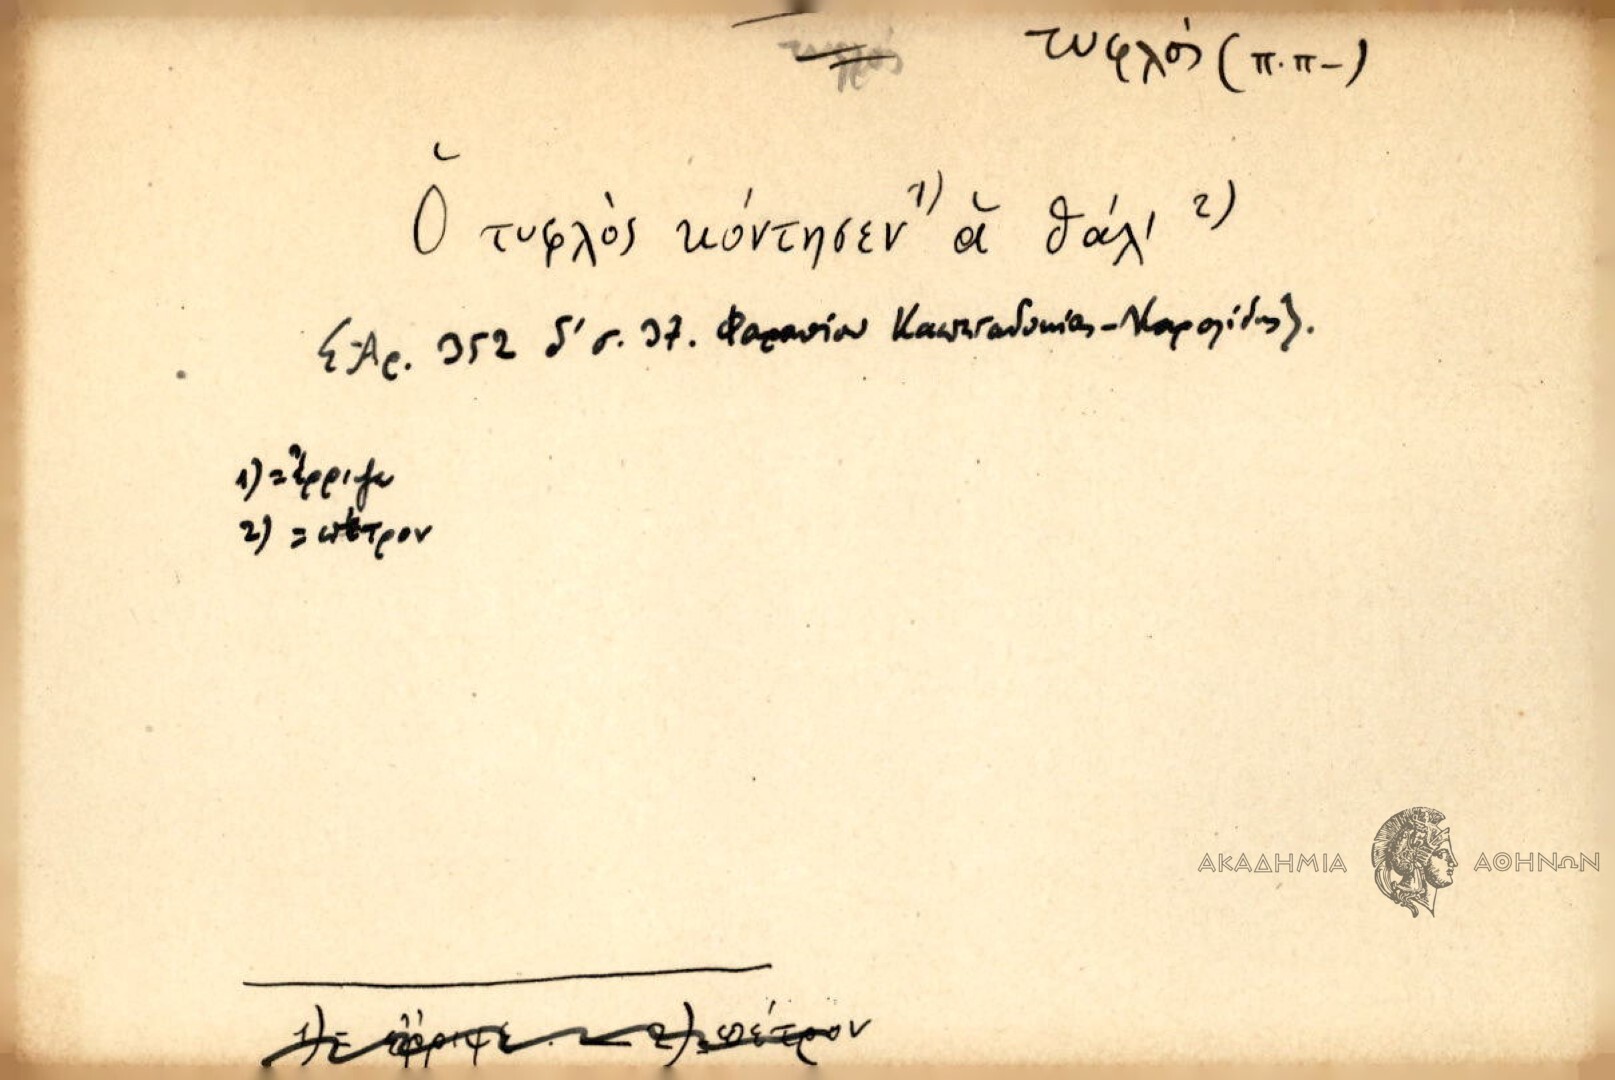 τυφλός (π.π-)
Ὁ τυφλὸς κόντησεν 1) ἅ θάλ' 2)
Ἀρ. 352 δ' σ. 37. Φαρασίου Καππαδοκίας - Καρολίδης.
1) = ἔρριψε
2) = πέτρον
ΑΚΑΔΗΜΙΑ ΑΘΗΝΩΝ
1) = ἔρριψε 2) = πέτρον